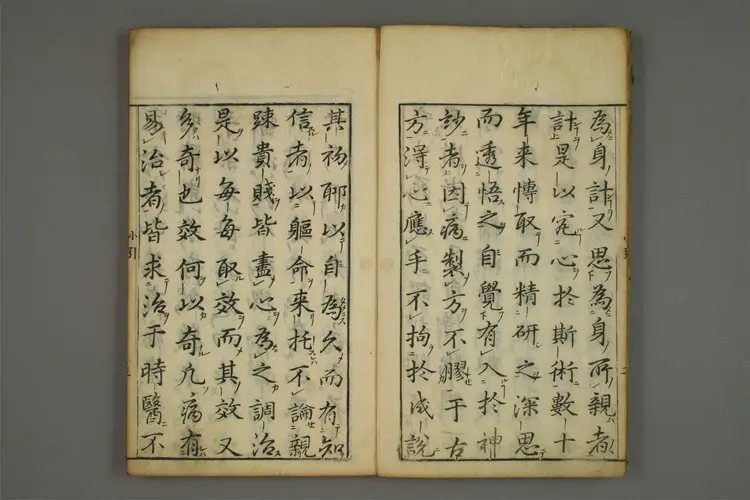 為身計又思為身所親者
計是以究心於斯術數十
年来慱取而精研之深思
而透悟之自覺有入於神
妙者因病製方不膠于古
方淂心應手不拘於成說
其初聊以自為久而有知
信者以軀命来托不論親
踈貴賤皆盡心為之調治
是以每每取效而其效又
多奇也效何以奇凡病有
易治者皆求治于時醫不
小引